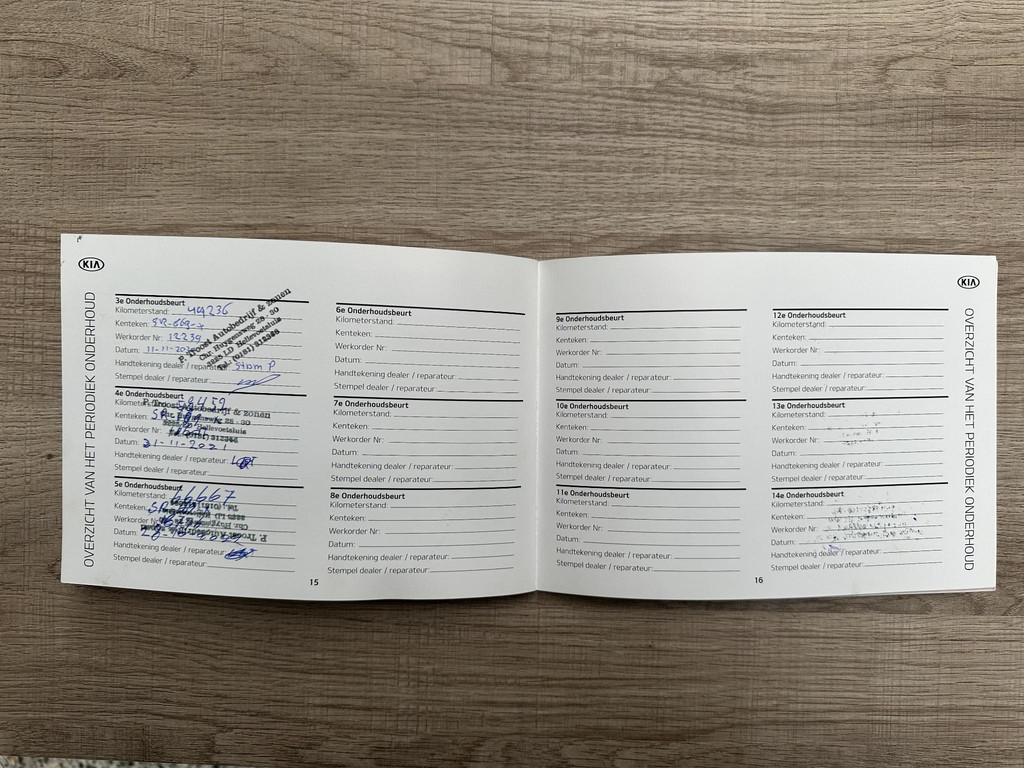 KIA
OVERZICHT VAN HET PERIODIEK ONDERHOUD
3e Onderhoudsbeurt
Kilometerstand: 49236
Kenteken: SR-669-X
Werkorder Nr: 12239
Datum: 11-11-
Handtekening dealer / reparateur:
Stempel dealer / reparateur:
P. Troost Autobedrijf & Zonen
Chr. Huygensweg 28 - 30
3225 LD Hellevoetsluis
Tel.: (0181) 312346
4e Onderhoudsbeurt
Kilometerstand: 58459
Kenteken: SR
Werkorder Nr:
Datum: 21-11-2021
Handtekening dealer / reparateur:
Stempel dealer / reparateur:
P. Troost Autobedrijf & Zonen
Chr. Huygensweg 28 - 30
3225 LD Hellevoetsluis
(0181) 312346
5e Onderhoudsbeurt
Kilometerstand: 66667
Kenteken: SR
Werkorder Nr:
Datum: 28
Handtekening dealer / reparateur:
Stempel dealer / reparateur:
P. Troost Autobedrijf & Zonen
6e Onderhoudsbeurt
Kilometerstand:
Kenteken:
Werkorder Nr:
Datum:
Handtekening dealer / reparateur:
Stempel dealer / reparateur:
7e Onderhoudsbeurt
Kilometerstand:
Kenteken:
Werkorder Nr:
Datum:
Handtekening dealer / reparateur:
Stempel dealer / reparateur:
8e Onderhoudsbeurt
Kilometerstand:
Kenteken:
Werkorder Nr:
Datum:
Handtekening dealer / reparateur:
Stempel dealer / reparateur:
15
9e Onderhoudsbeurt
Kilometerstand:
Kenteken:
Werkorder Nr:
Datum:
Handtekening dealer / reparateur:
Stempel dealer / reparateur:
10e Onderhoudsbeurt
Kilometerstand:
Kenteken:
Werkorder Nr:
Datum:
Handtekening dealer / reparateur:
Stempel dealer / reparateur:
11e Onderhoudsbeurt
Kilometerstand:
Kenteken:
Werkorder Nr:
Datum:
Handtekening dealer / reparateur:
Stempel dealer / reparateur:
12e Onderhoudsbeurt
Kilometerstand:
Kenteken:
Werkorder Nr:
Datum:
Handtekening dealer / reparateur:
Stempel dealer / reparateur:
13e Onderhoudsbeurt
Kilometerstand:
Kenteken:
Werkorder Nr:
Datum:
Handtekening dealer / reparateur:
Stempel dealer / reparateur:
14e Onderhoudsbeurt
Kilometerstand:
Kenteken:
Werkorder Nr:
Datum:
Handtekening dealer / reparateur:
Stempel dealer / reparateur:
16
KIA
OVERZICHT VAN HET PERIODIEK ONDERHOUD